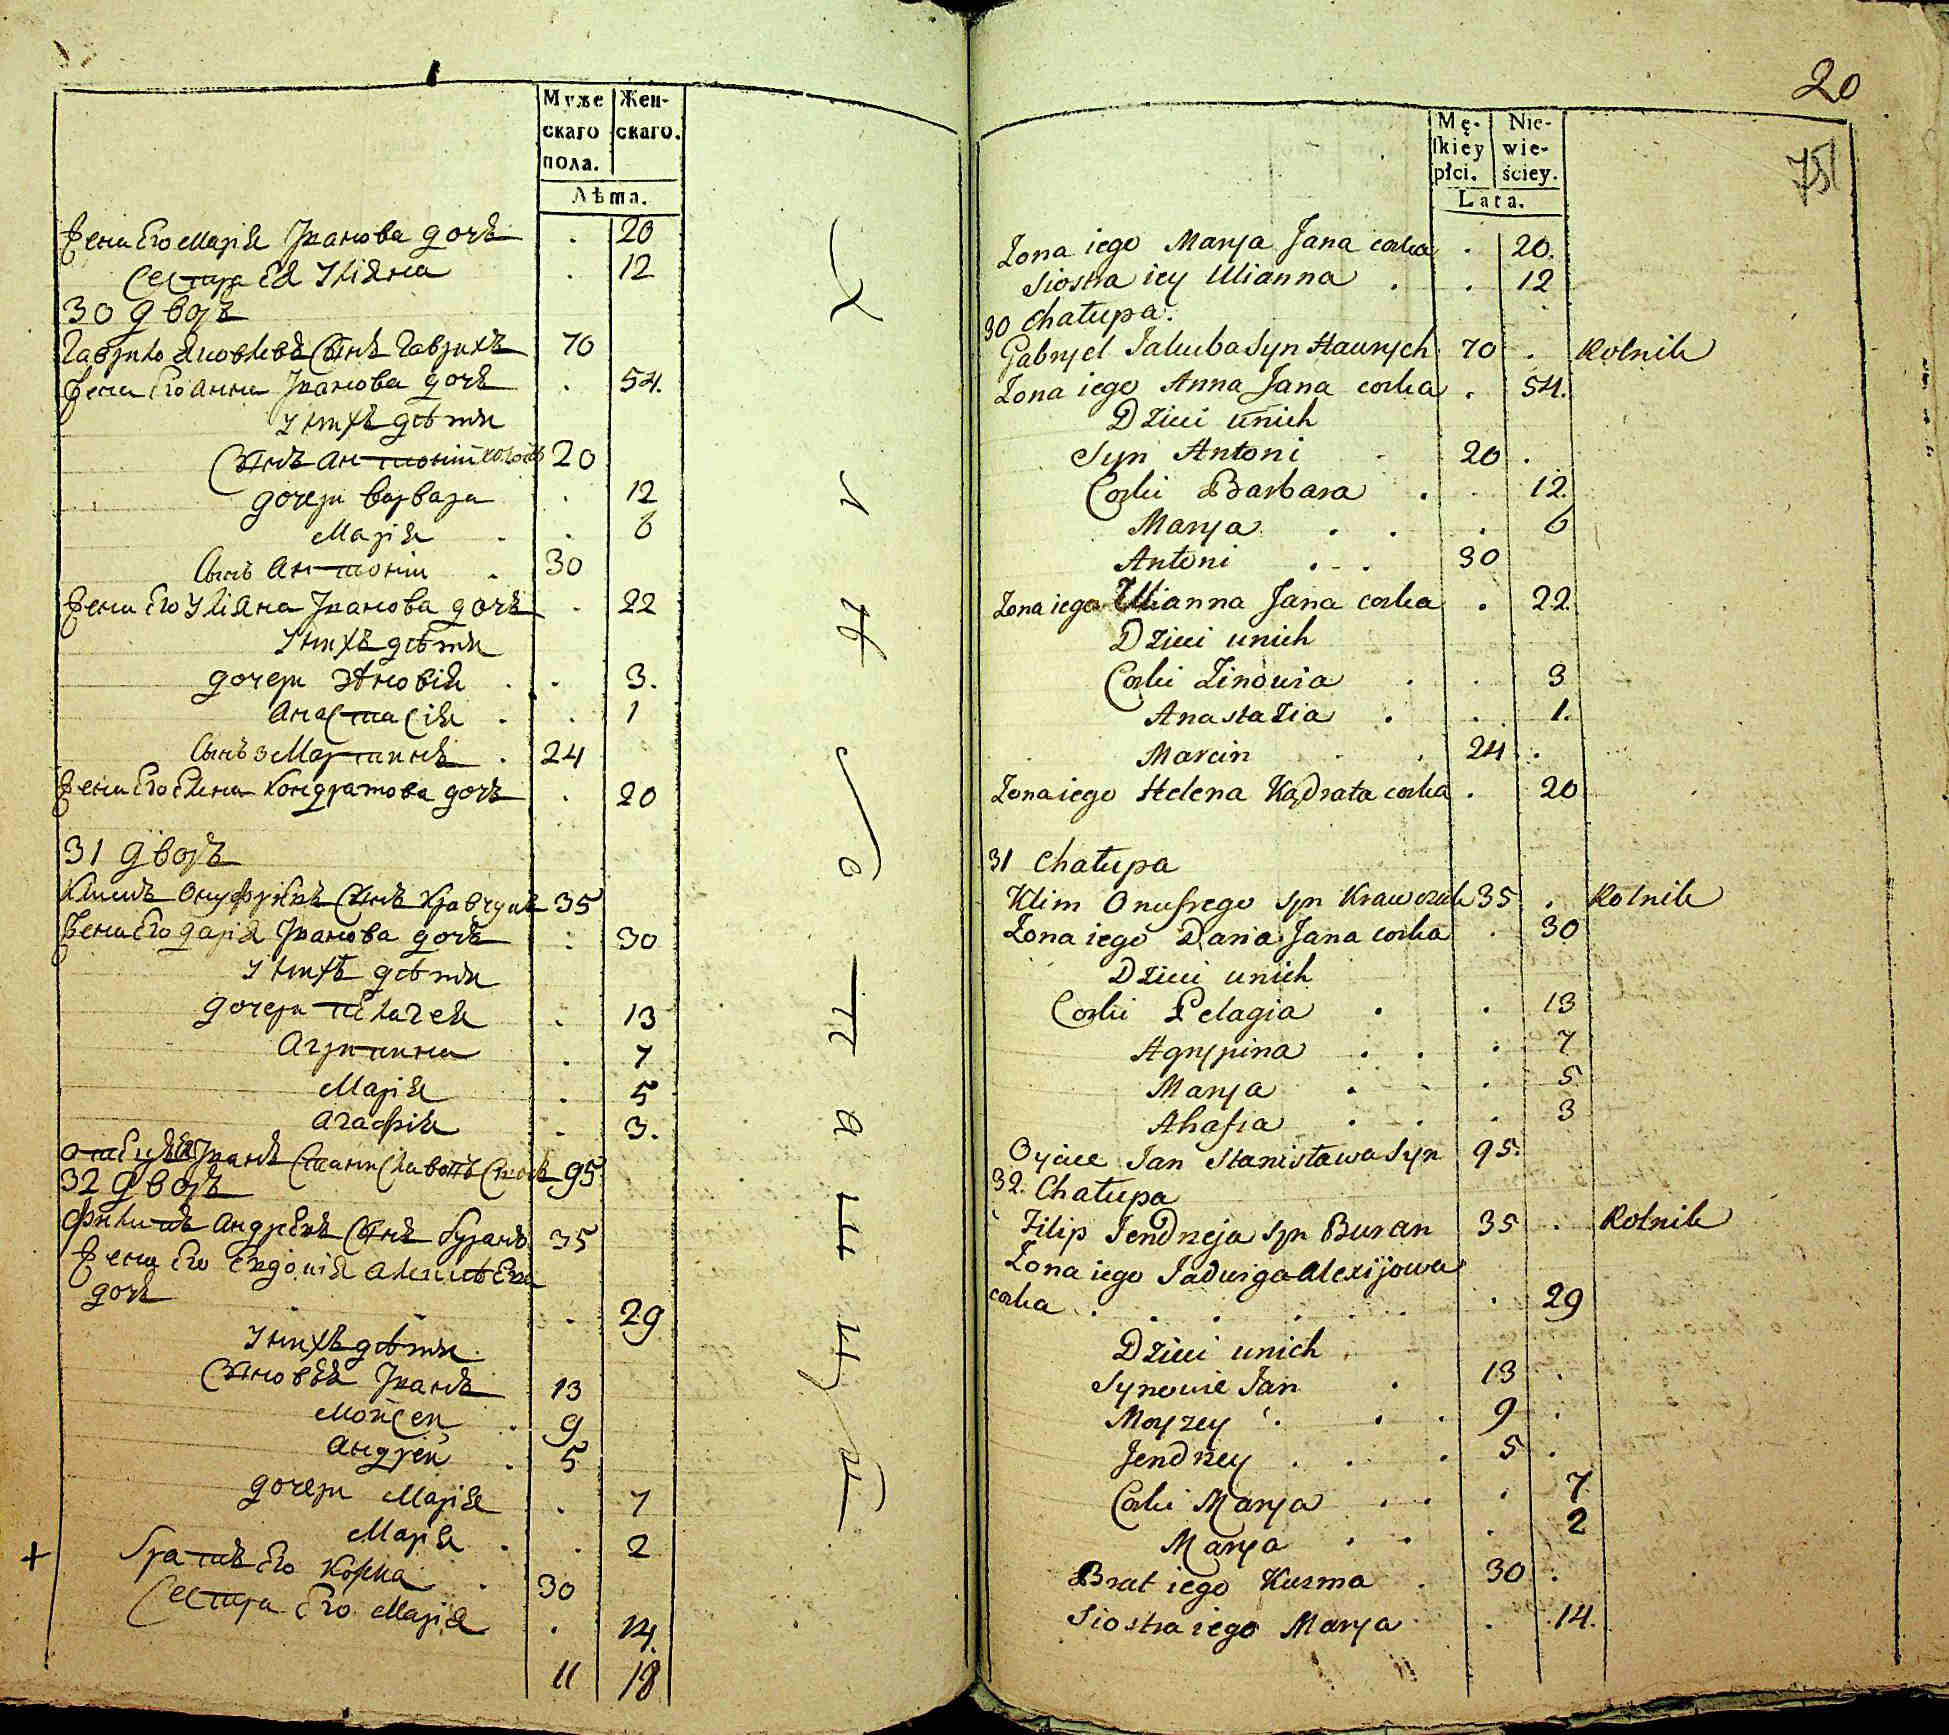 Муже Жен-
скаго скаго.
пола.
Лѣта.
Жена Его Марія Иванова дочь . 20
Сестра Ея Уліяна . 12
30 дворъ
Гаврило Яковлевъ Сынъ Гаврихъ 70
Жена Его Анна Иванова дочь . 54.
У нихъ дѣти
Сынъ Антоній 20
дочери Варвара . 12
Марія . 6
Сынъ Антоній . 30
Жена Его Уліяна Иванова дочь . 22
У нихъ дѣти
дочери Зѣновія . . 3.
Анастасія . . 1
Сынъ Мартинъ . 24
Жена Его Елена Кондратова дочь . 20
31 дворъ
Климъ Онуфріевъ Сынъ Кравчукъ 35
Жена Его Дарія Иванова дочь . 30
У нихъ дѣти
дочери Пелагея . 13
Агрипина . 7
Марія . 5
Агафія . 3.
Отецъ Иванъ Станиславовъ Сынъ 95
32 дворъ
Филипъ Андреевъ Сынъ Буранъ 35
Жена Его Евдокія Алексѣева
дочь . 29
У нихъ дѣти
Сыновья Иванъ 13
Мойсей . 9
Андрей . 5
дочери Марія . 7
Марія . . 2
+ Братъ Его Козма . 30
Сестра Его Марія . 14.
11 18
20
751
Mę- Nie-
skiey wie-
płci. ściey.
Lata.
Zona iego Marya Jana corka . 20.
Siostra iey Ulianna . . 12
30 Chałupa.
Gabryel Jakuba Syn Hawrych 70 . Rolnik
Zona iego Anna Jana corka . 54.
Dzieci unich
Syn Antoni 20 .
Corki Barbara . . 12.
Marya . . . 6
Antoni . . . 30
Zona iego Ulianna Jana corka . 22
Dzieci unich
Corki Zinowia . . 3
Anastazia . . 1.
Marcin . 24 .
Zona iego Helena Kądrata corka . 20
31 Chałupa
Klim Onufrego syn Krawczuk 35 . Rolnik
Zona iego Daria Jana corka . 30
Dzieci unich
Corki Pelagia . . 13
Agrypina . . . 7
Marya . . . 5
Ahafia . . . 3
Oyciec Jan Stanisława Syn 95.
32. Chałupa
Filip Jendrzeja syn Buran 35 . Rolnik
Zona iego Jadwiga Alexijowa
corka . . . . . . . 29
Dzieci unich
Synowie Jan . 13 .
Moyzey . . . 9 .
Jendrzey . . . 5 .
Corki Marya . . . 7
Marya . . . 2
Brat iego Kuzma . 30 .
Siostra iego Marya . 14.